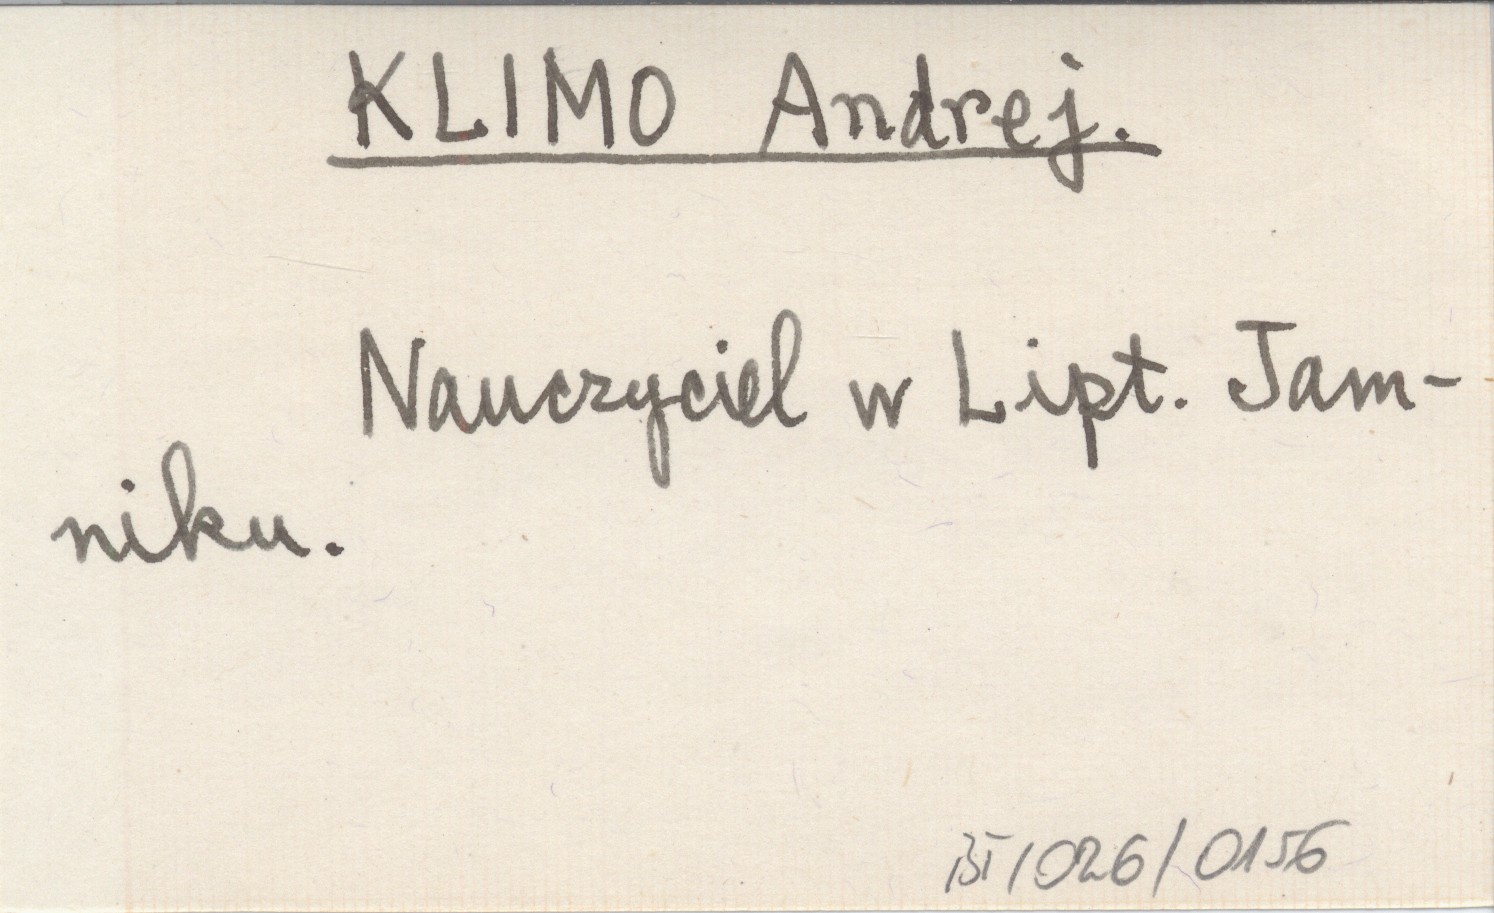 KLIMO Andrej.
Nauczyciel w Lipt. Jam-
niku.
BI/026/0156